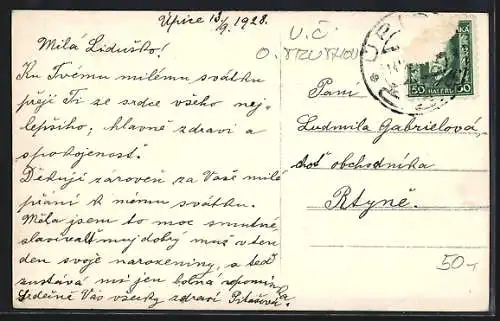 Úpice 13/9. 1928.
Milá Liduško!
Ku Tvému milému svátku
přeji Ti ze srdce všeho nej-
lepšího, hlavně zdraví a
spokojenost.
Děkuji zároveň za Vaše milé
přání k mému svátku.
Měla jsem to moc smutné
slavívalť muj dobrý muž v ten
den svoje narozeniny, a teď
zustává mi jen bolná vzpomínka.
Srdečně Vás všecky zdraví
U.Č.
50 HALÉŘŮ 50
Paní
Ludmila Gabrielová,
choť obchodníka
Rtyně.
50-